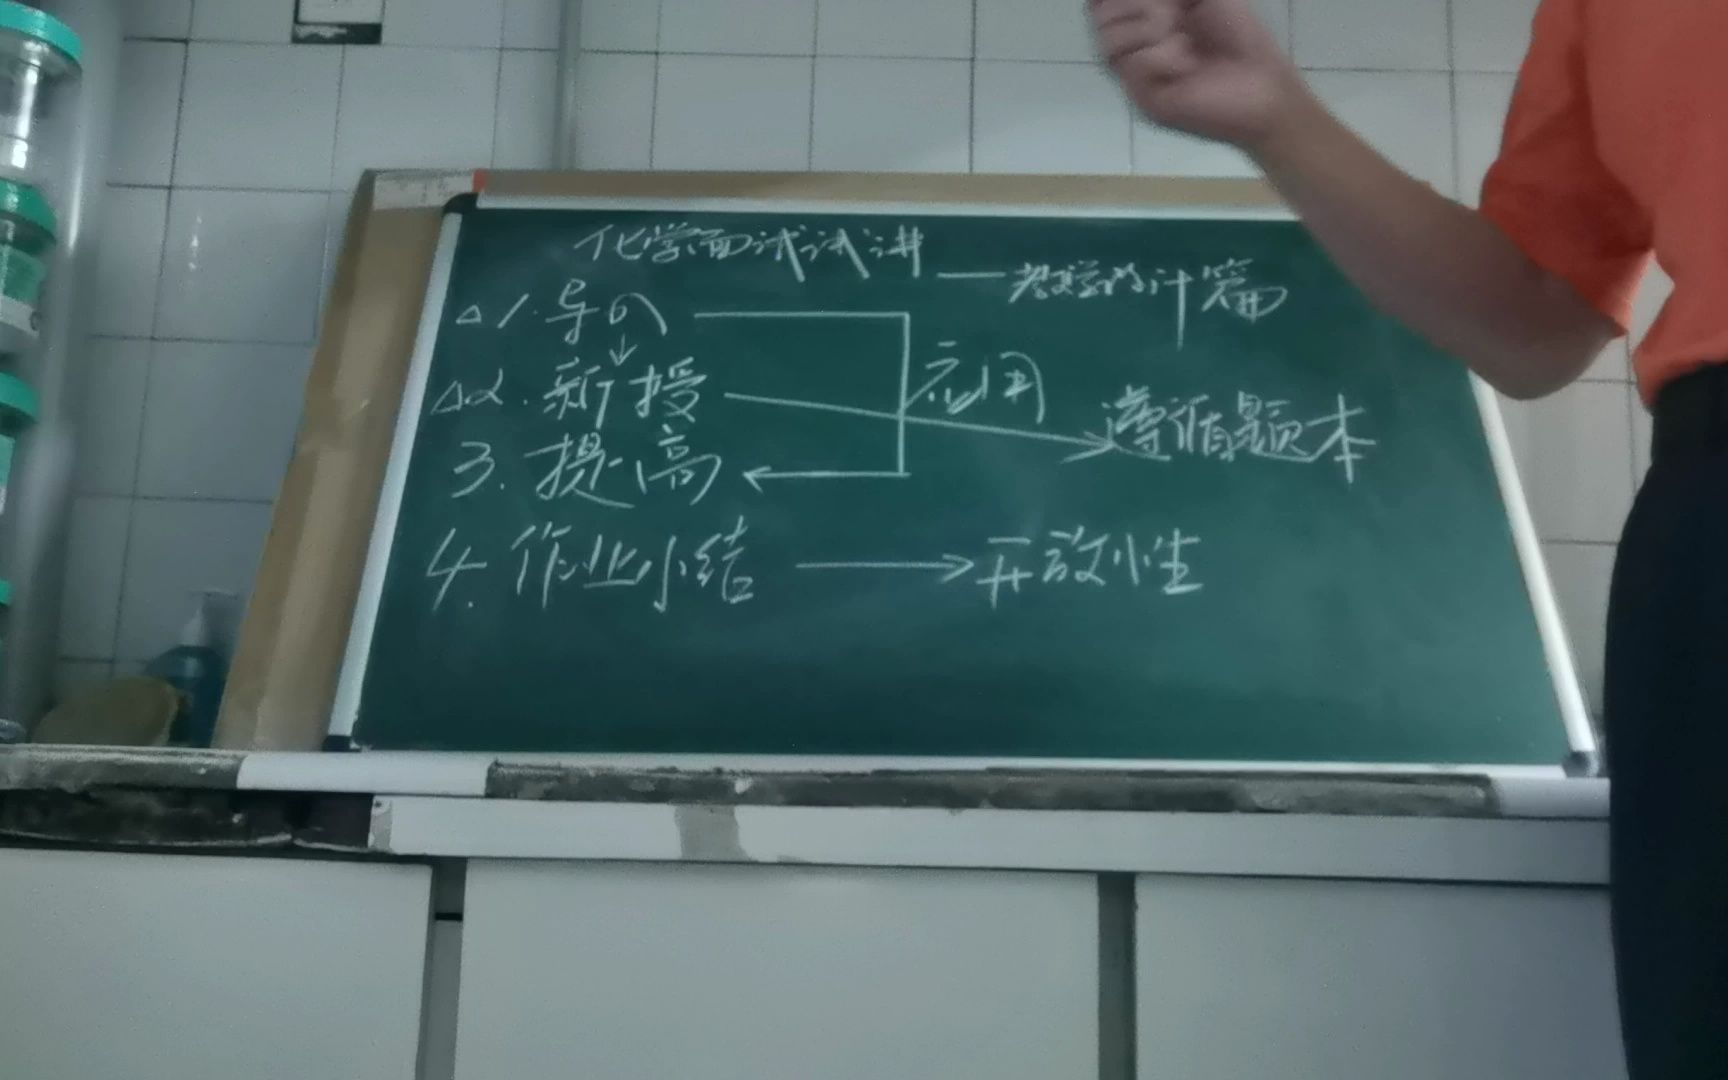 化学面试试讲
——教学设计篇
△1.导入
应用
△2.新授
遵循题本
3.提高
4.作业小结
开放性